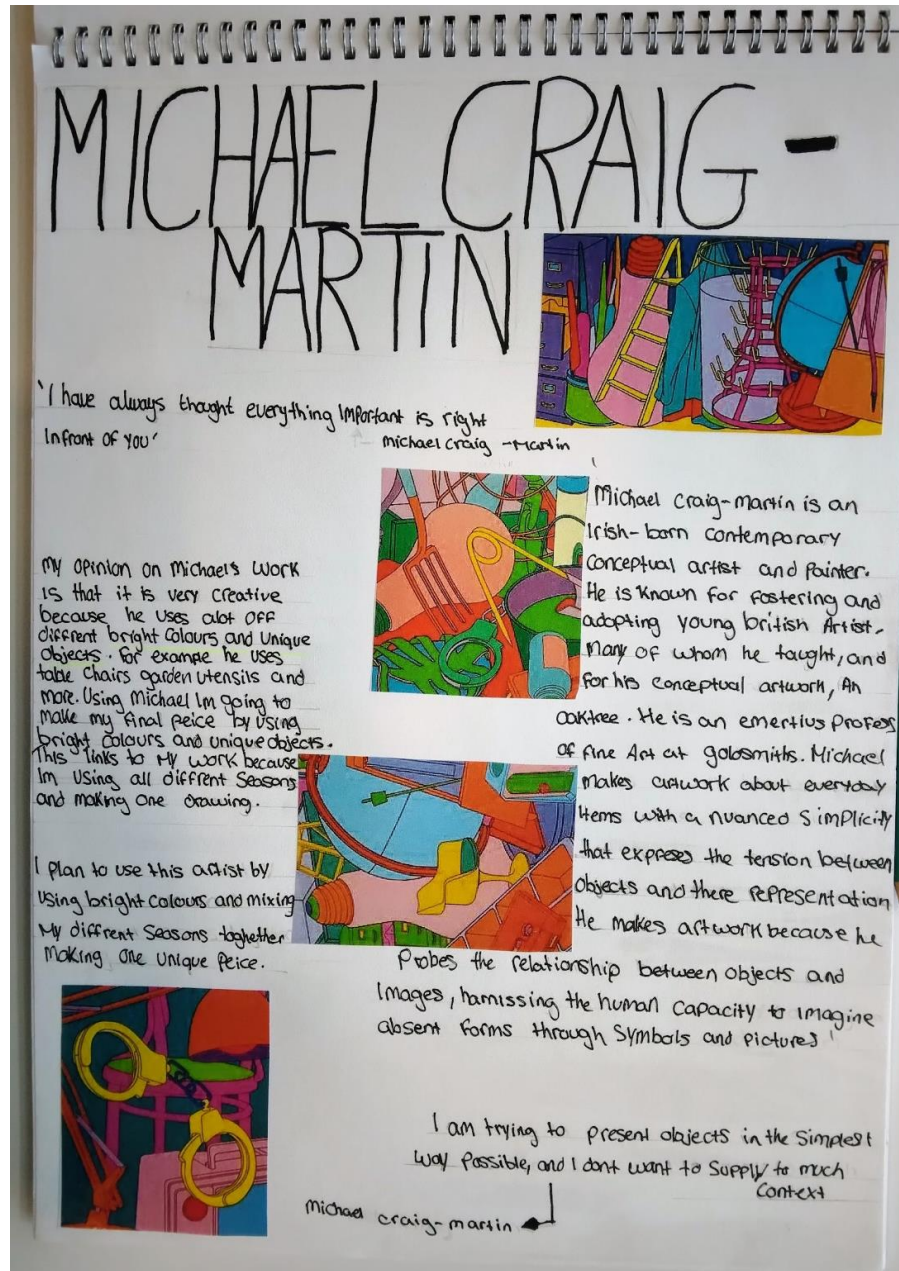 MICHAEL CRAIG-
MARTIN
'I have always thought everything Important is right
Infront of you'
- Michael Craig -Martin
My opinion on Michael's work
is that it is very creative
because he uses alot off
diffrent bright colours and unique
objects. For example he uses
table Chairs garden utensils and
more. Using Michael Im going to
make my final peice by using
bright colours and unique objects.
This links to My work because
Im using all diffrent Seasons
and making one drawing.
I plan to use this artist by
using bright colours and mixing
My diffrent Seasons toghether
Making one unique peice.
Michael Craig-martin is an
Irish-born contemporary
conceptual artist and painter.
He is known for fostering and
adopting young british Artist.
Many of whom he taught, and
for his conceptual artwork, An
oaktree. He is an emertius Profess
of fine Art at goldsmiths. Michael
makes artwork about everyday
items with a nuanced Simplicity
that expreses the tension between
objects and there representation
He makes artwork because he
Probes the relationship between objects and
Images, harnissing the human capacity to imagine
absent forms through Symbols and Pictures'
I am trying to present objects in the Simplest
way Possible, and I dont want to Supply to much
Context
Michael craig-martin